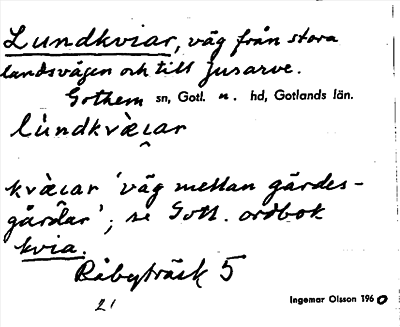 Lundkviar, väg från stora
landsvägen och till Jusarve.
Gothem sn, Gotl. n. hd, Gotlands län.
lùndkvàɛi̯ar
kvàɛi̯ar 'väg mellan gärdes-
gårdar'; se Gotl. ordbok
kvia.
Råbyträsk 5
21
Ingemar Olsson 1960